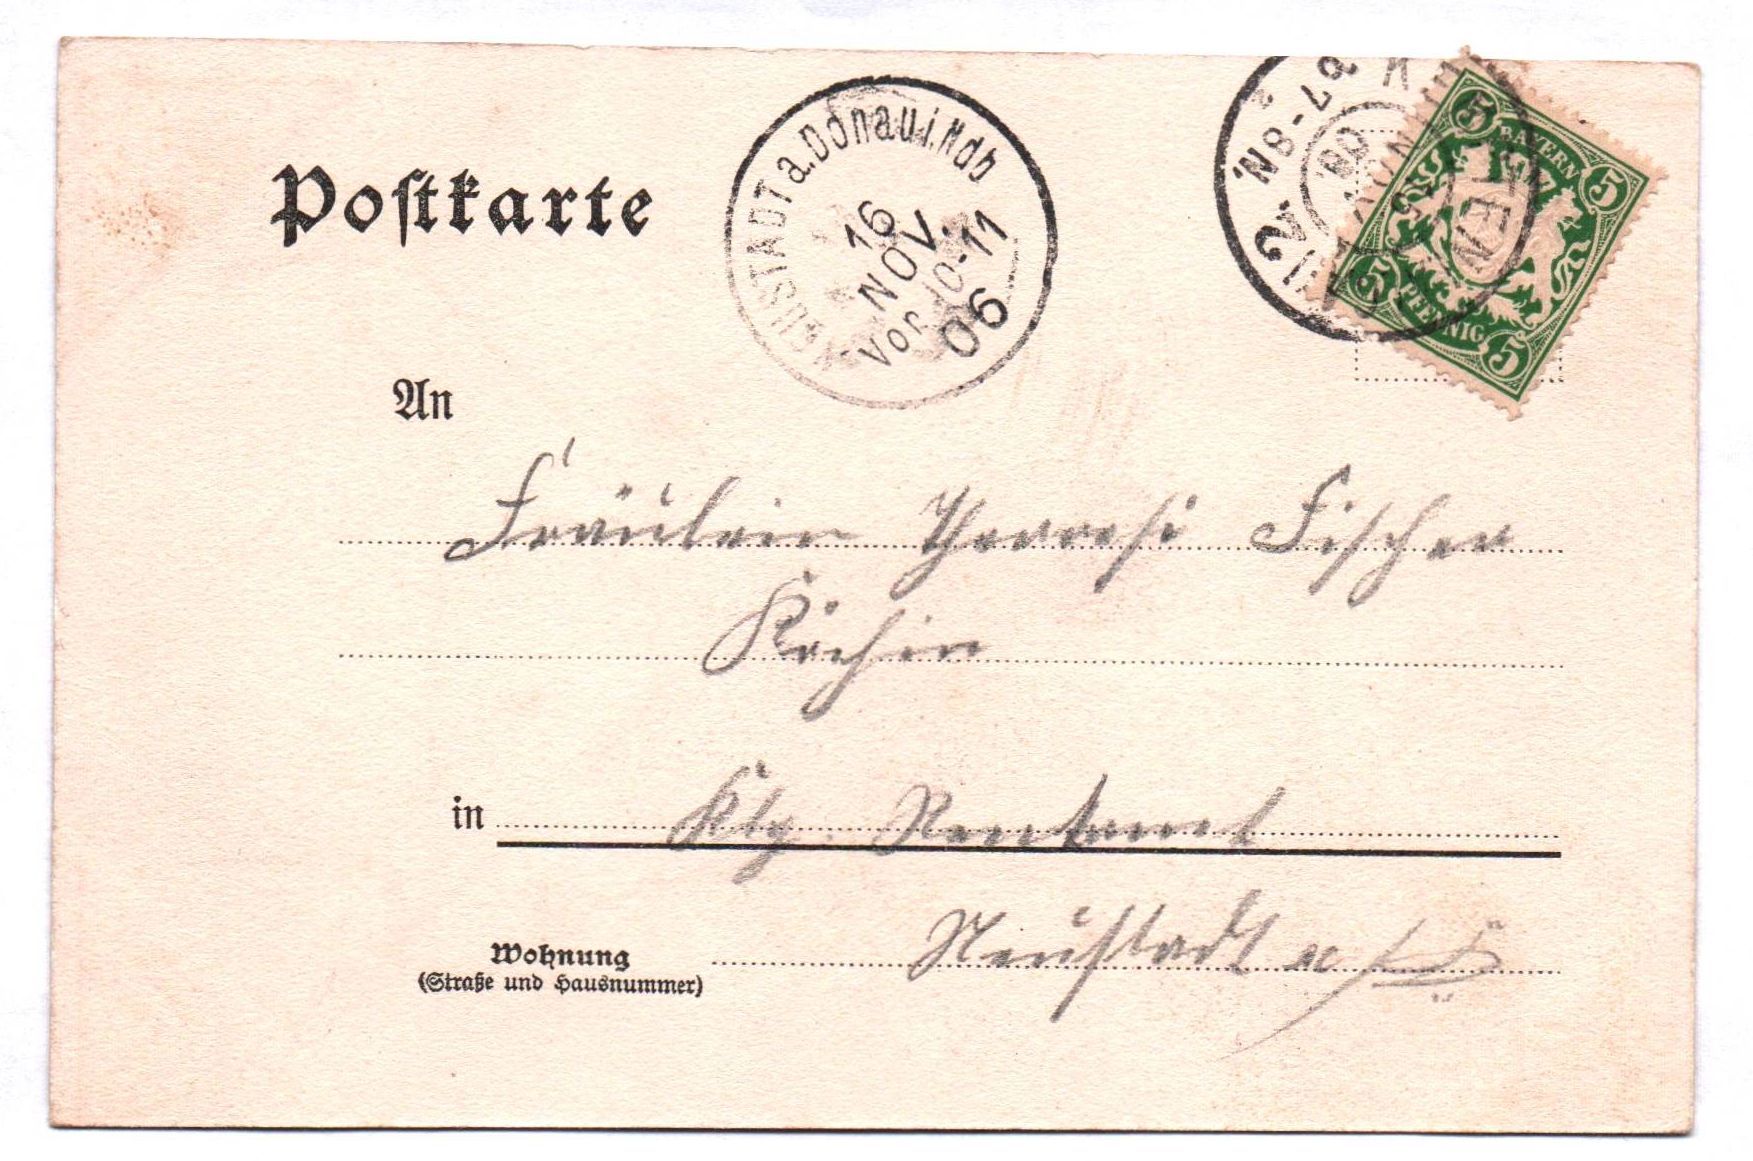 Postkarte
NEUSTADT a. Donau i. Ndb
16
NOV.
Vor. 10-11
06
N8-
15 NOV
06
5 BAYERN 5
5 PFENNIG 5
An
Fräulein Therresi Fischer
Köchin
in Klg. Rentamt
Wohnung Neustadt a/D
(Straße und Hausnummer)